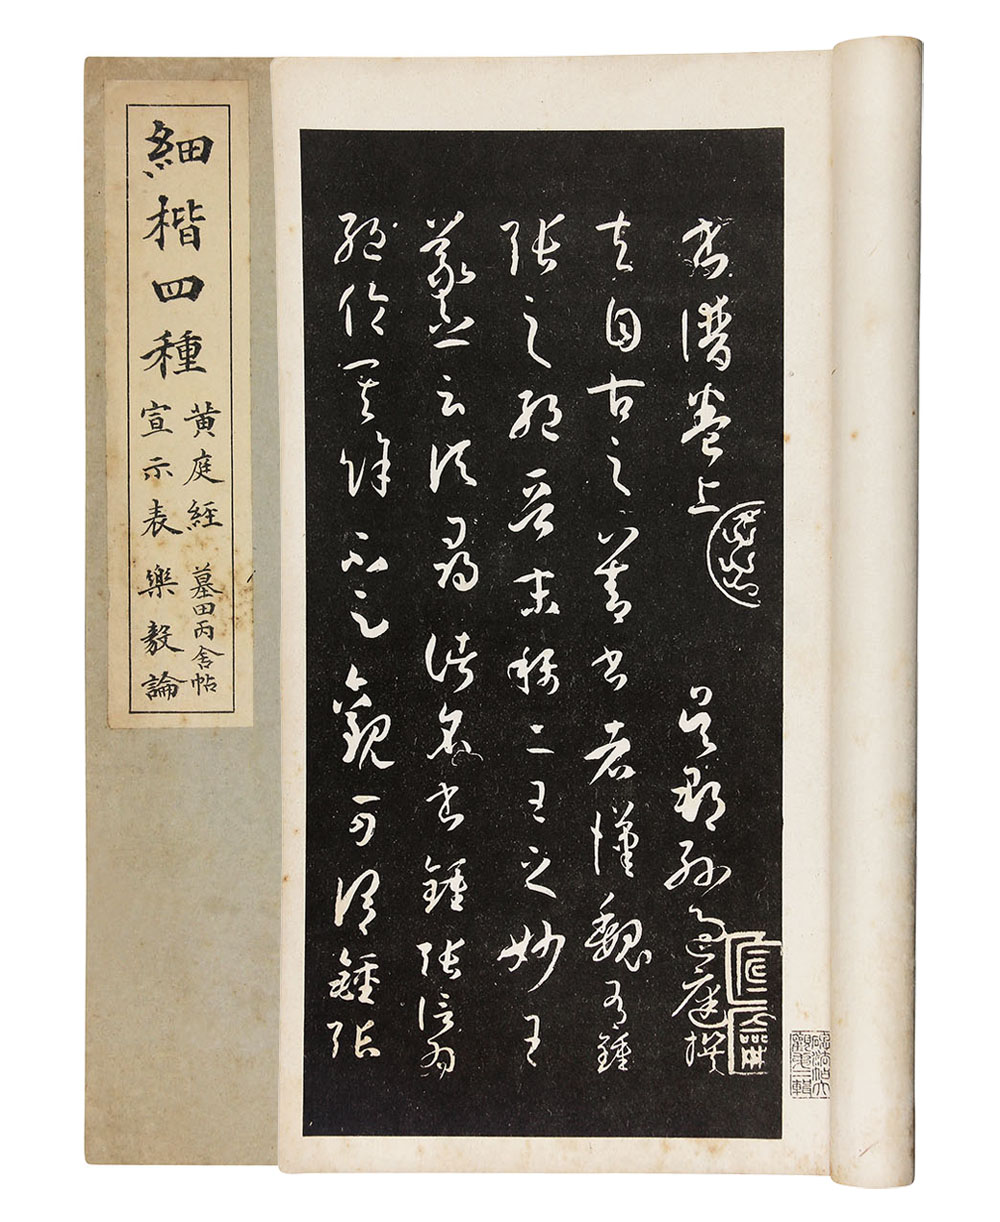 書譜卷上
吳郡孫過庭撰
夫自古之善書者漢魏有鍾
張之絕晉末稱二王之妙王
羲之云頃尋諸名書鍾張信為
絕倫其餘不足觀可謂鍾張
細楷四種
黄庭經
墓田丙舍帖
宣示表
樂毅論